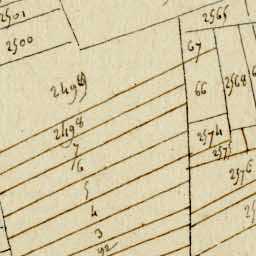 2501
2565
2500
67
2499
66
2568
2498
2574
7
2575
6
2576
5
4
3
92